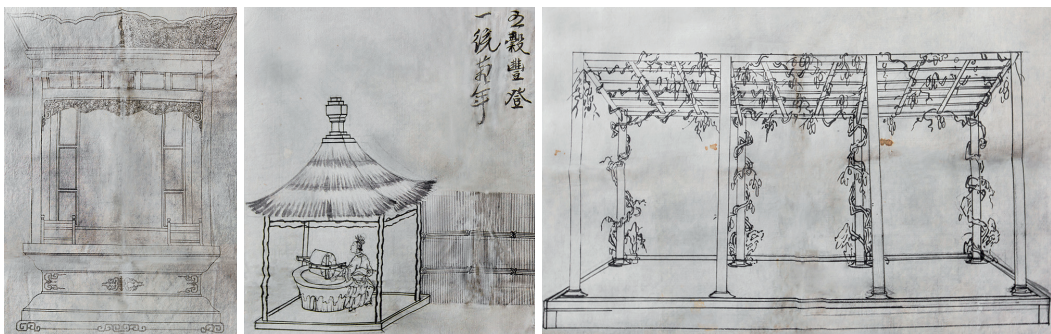 五穀豐登
一統萬年